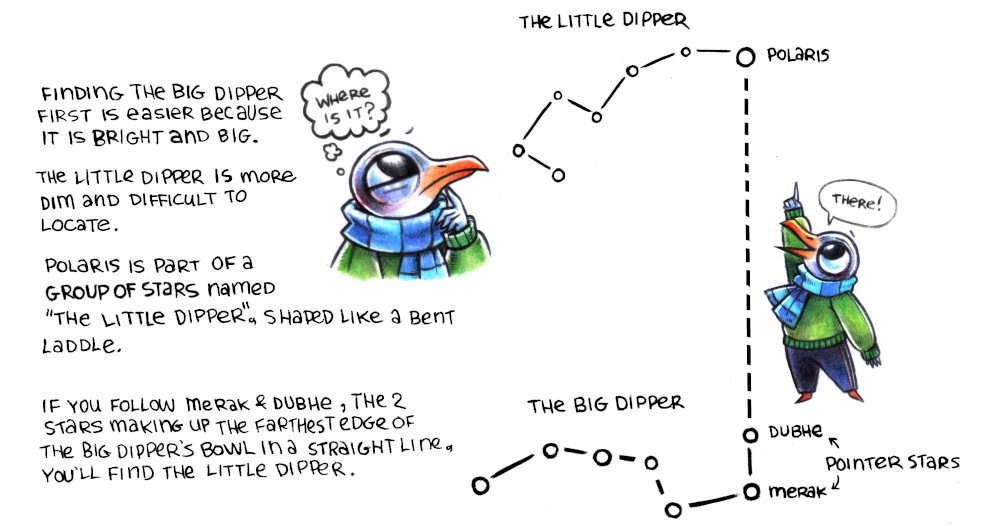 FINDING THE BIG DIPPER
FIRST IS EASIER BECAUSE
IT IS BRIGHT AND BIG.
THE LITTLE DIPPER IS MORE
DIM AND DIFFICULT TO
LOCATE.
POLARIS IS PART OF A
GROUP OF STARS NAMED
"THE LITTLE DIPPER", SHAPED LIKE A BENT
LADDLE.
IF YOU FOLLOW MERAK & DUBHE, THE 2
STARS MAKING UP THE FARTHEST EDGE OF
THE BIG DIPPER'S BOWL IN A STRAIGHT LINE,
YOU'LL FIND THE LITTLE DIPPER.
WHERE
IS IT?
THE LITTLE DIPPER
POLARIS
THERE!
THE BIG DIPPER
DUBHE
POINTER STARS
MERAK